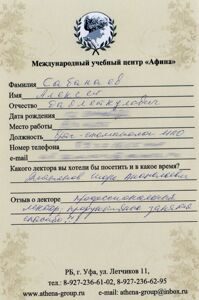 Международный учебный центр «Афина»
Фамилия Сабанаев
Имя Алексей
Отчество
Дата рождения
Место работы
Должность Врач-стоматолог
Номер телефона
e-mail
Какого лектора вы хотели бы посетить и в какое время?
Отзыв о лекторе Профессиональный
лектор, продуктивное занятие
спасибо!
РБ, г. Уфа, ул. Летчиков 11,
тел.: 8-927-236-61-02, 8-927-236-62-95
www.athena-group.ru e-mail: athena-group@inbox.ru